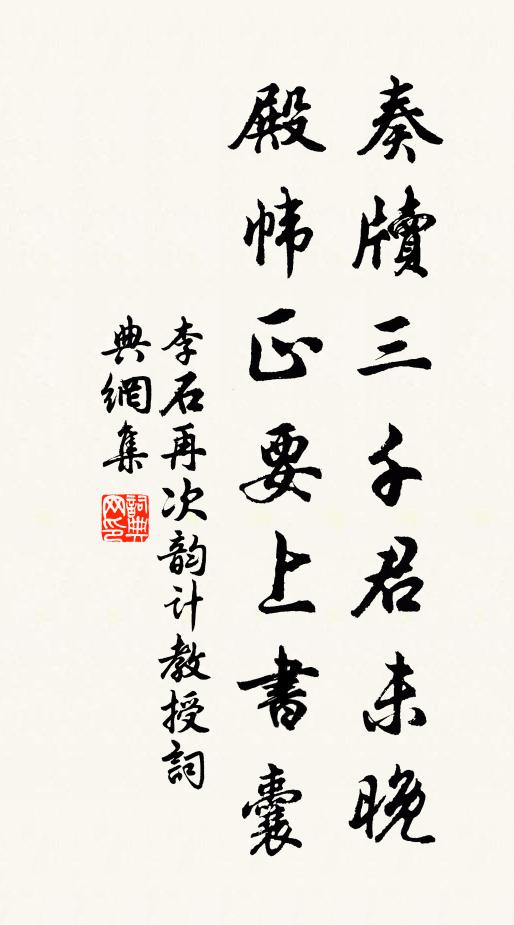 奏牘三千君未晚
殿帷正要上書囊
李石再次韵计教授詞
典網集
詞典
网印